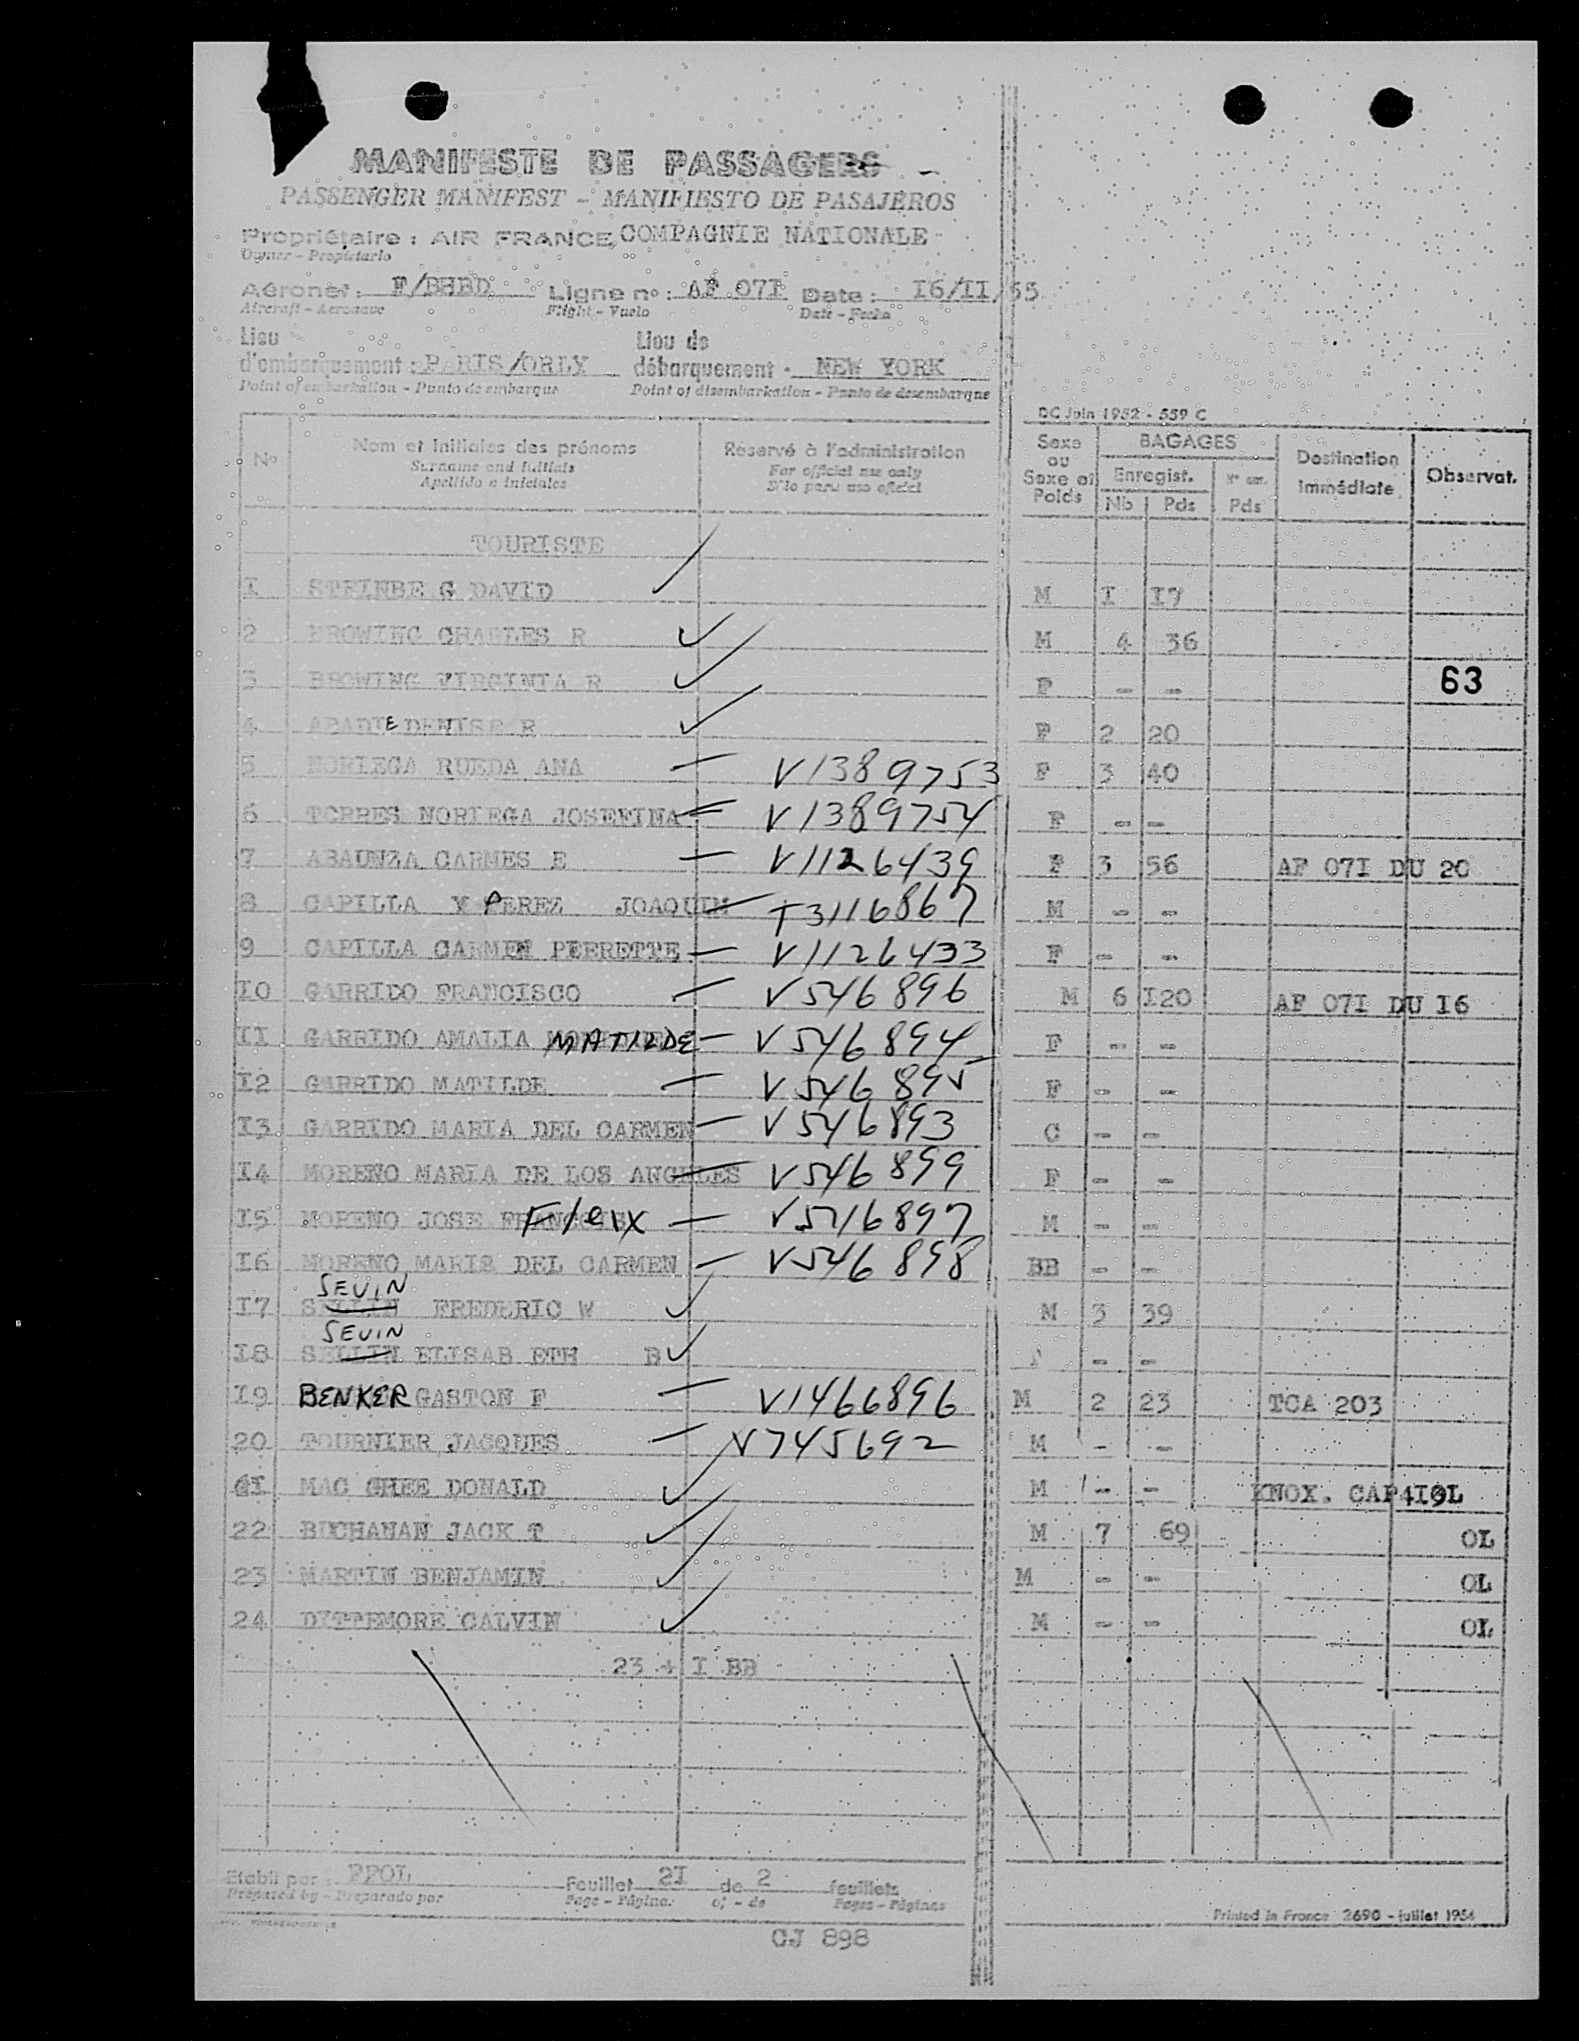 MANIFESTE DE PASSAGERS
PASSENGER MANIFEST - MANIFIESTO DE PASAJEROS
Propriétaire : AIR FRANCE, COMPAGNIE NATIONALE
Owner - Propietario
Aéronef : F/BHBD Ligne n° : AF 07I Date : I6/II/55
Aircraft - Aeronave Flight - Vuelo Date - Fecha
Lieu d'embarquement : PARIS/ORLY Lieu de débarquement : NEW YORK
Point of embarkation - Punto de embarque Point of disembarkation - Punto de desembarque
DC Juin 1952 - 559 C
N° Nom et initiales des prénoms Réservé à l'administration Sexe ou Sexe et Poids BAGAGES Destination immédiate Observat.
Surname and initials For official use only Enregist.
Apellido e iniciales Sólo para uso oficial Nb Pds Pds
TOURISTE
I STEINBE G DAVID M I I7
2 BROWING CHARLES R M 4 36
3 BROWING VIRGINIA R F - -
63
4 ABADIE DENISE R F 2 20
5 NORIEGA RUEDA ANA V1389753 F 3 40
6 TORRES NORIEGA JOSEFINA V1389754 F - -
7 ABAUNZA CARMES E V1126439 F 3 56 AF 07I DU 20
8 CAPILLA Y PEREZ JOAQUIN T3116867 M - -
9 CAPILLA CARMEN PIERRETTE V1126433 F - -
I0 GARRIDO FRANCISCO V546896 M 6 I20 AF 07I DU I6
II GARRIDO AMALIA MATILDE V546894 F - -
I2 GARRIDO MATILDE V546895 F - -
I3 GARRIDO MARIA DEL CARMEN V546893 C - -
I4 MORENO MARIA DE LOS ANGELES V546899 F - -
I5 MORENO JOSE Felix V546897 M - -
I6 MORENO MARIA DEL CARMEN V546898 BB - -
SEVIN
I7 SELLIN FREDERIC W M 3 39
SEVIN
I8 SELLIN ELISAB ETH B F - -
I9 BENKER GASTON F V1466896 M 2 23 TCA 203
20 TOURNIER JACQUES V745692 M - -
2I MAC GHEE DONALD M - - KNOX. CAP4I9L
22 BUCHANAN JACK T M 7 69 OL
23 MARTIN BENJAMIN M - - OL
24 DITTEMORE CALVIN M - - OL
23 + I BB
Etabli par : FPOL Feuillet 2I de 2 feuillets
Prepared by - Preparado por Page - Página of - de Pages - Páginas
Printed in France 2690 - juillet 1954
CJ 898